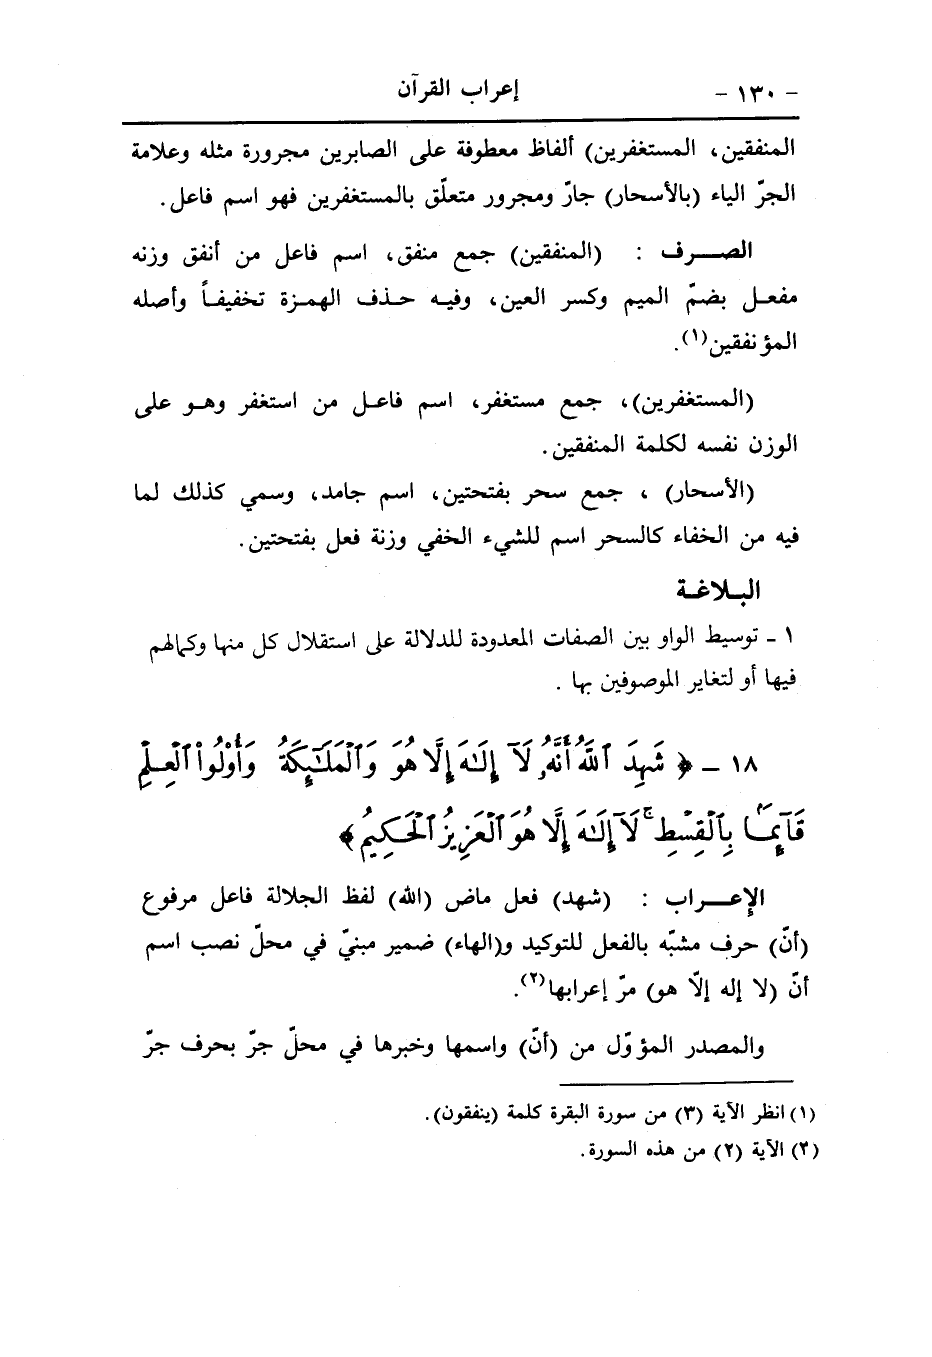 - ١٣٠ - إعراب القرآن
المنفقين، المستغفرين) ألفاظ معطوفة على الصابرين مجرورة مثله وعلامة
الجرّ الياء (بالأسحار) جارّ ومجرور متعلّق بالمستغفرين فهو اسم فاعل.
الصـــرف : (المنفقين) جمع منفق، اسم فاعل من أنفق وزنه
مفعـل بضمّ الميم وكسر العين، وفيـه حـذف الهمـزة تخفيفـاً وأصله
المؤنفقين(١).
(المستغفرين)، جمع مستغفر، اسم فاعـل من استغفر وهـو على
الوزن نفسه لكلمة المنفقين.
(الأسحار) ، جمع سحر بفتحتين، اسم جامد، وسمي كذلك لما
فيه من الخفاء كالسحر اسم للشيء الخفي وزنة فعل بفتحتين.
البـلاغـة
١ ـ توسيط الواو بين الصفات المعدودة للدلالة على استقلال كل منها وكمالهم
فيها أو لتغاير الموصوفين بها .
١٨ ـ ﴿ شَهِدَ ٱللَّهُ أَنَّهُۥ لَآ إِلَٰهَ إِلَّا هُوَ وَٱلْمَلَٰٓئِكَةُ وَأُوْلُوا۟ ٱلْعِلْمِ
قَآئِمًۢا بِٱلْقِسْطِ ۚ لَآ إِلَٰهَ إِلَّا هُوَ ٱلْعَزِيزُ ٱلْحَكِيمُ ﴾
الإعـــراب : (شهد) فعل ماض (الله) لفظ الجلالة فاعل مرفوع
(أنّ) حرف مشبّه بالفعل للتوكيد و(الهاء) ضمير مبنيّ في محلّ نصب اسم
أنّ (لا إله إلّا هو) مرّ إعرابها(٢).
والمصدر المؤوّل من (أنّ) واسمها وخبرها في محلّ جرّ بحرف جرّ
(١) انظر الآية (٣) من سورة البقرة كلمة (ينفقون).
(٢) الآية (٢) من هذه السورة.